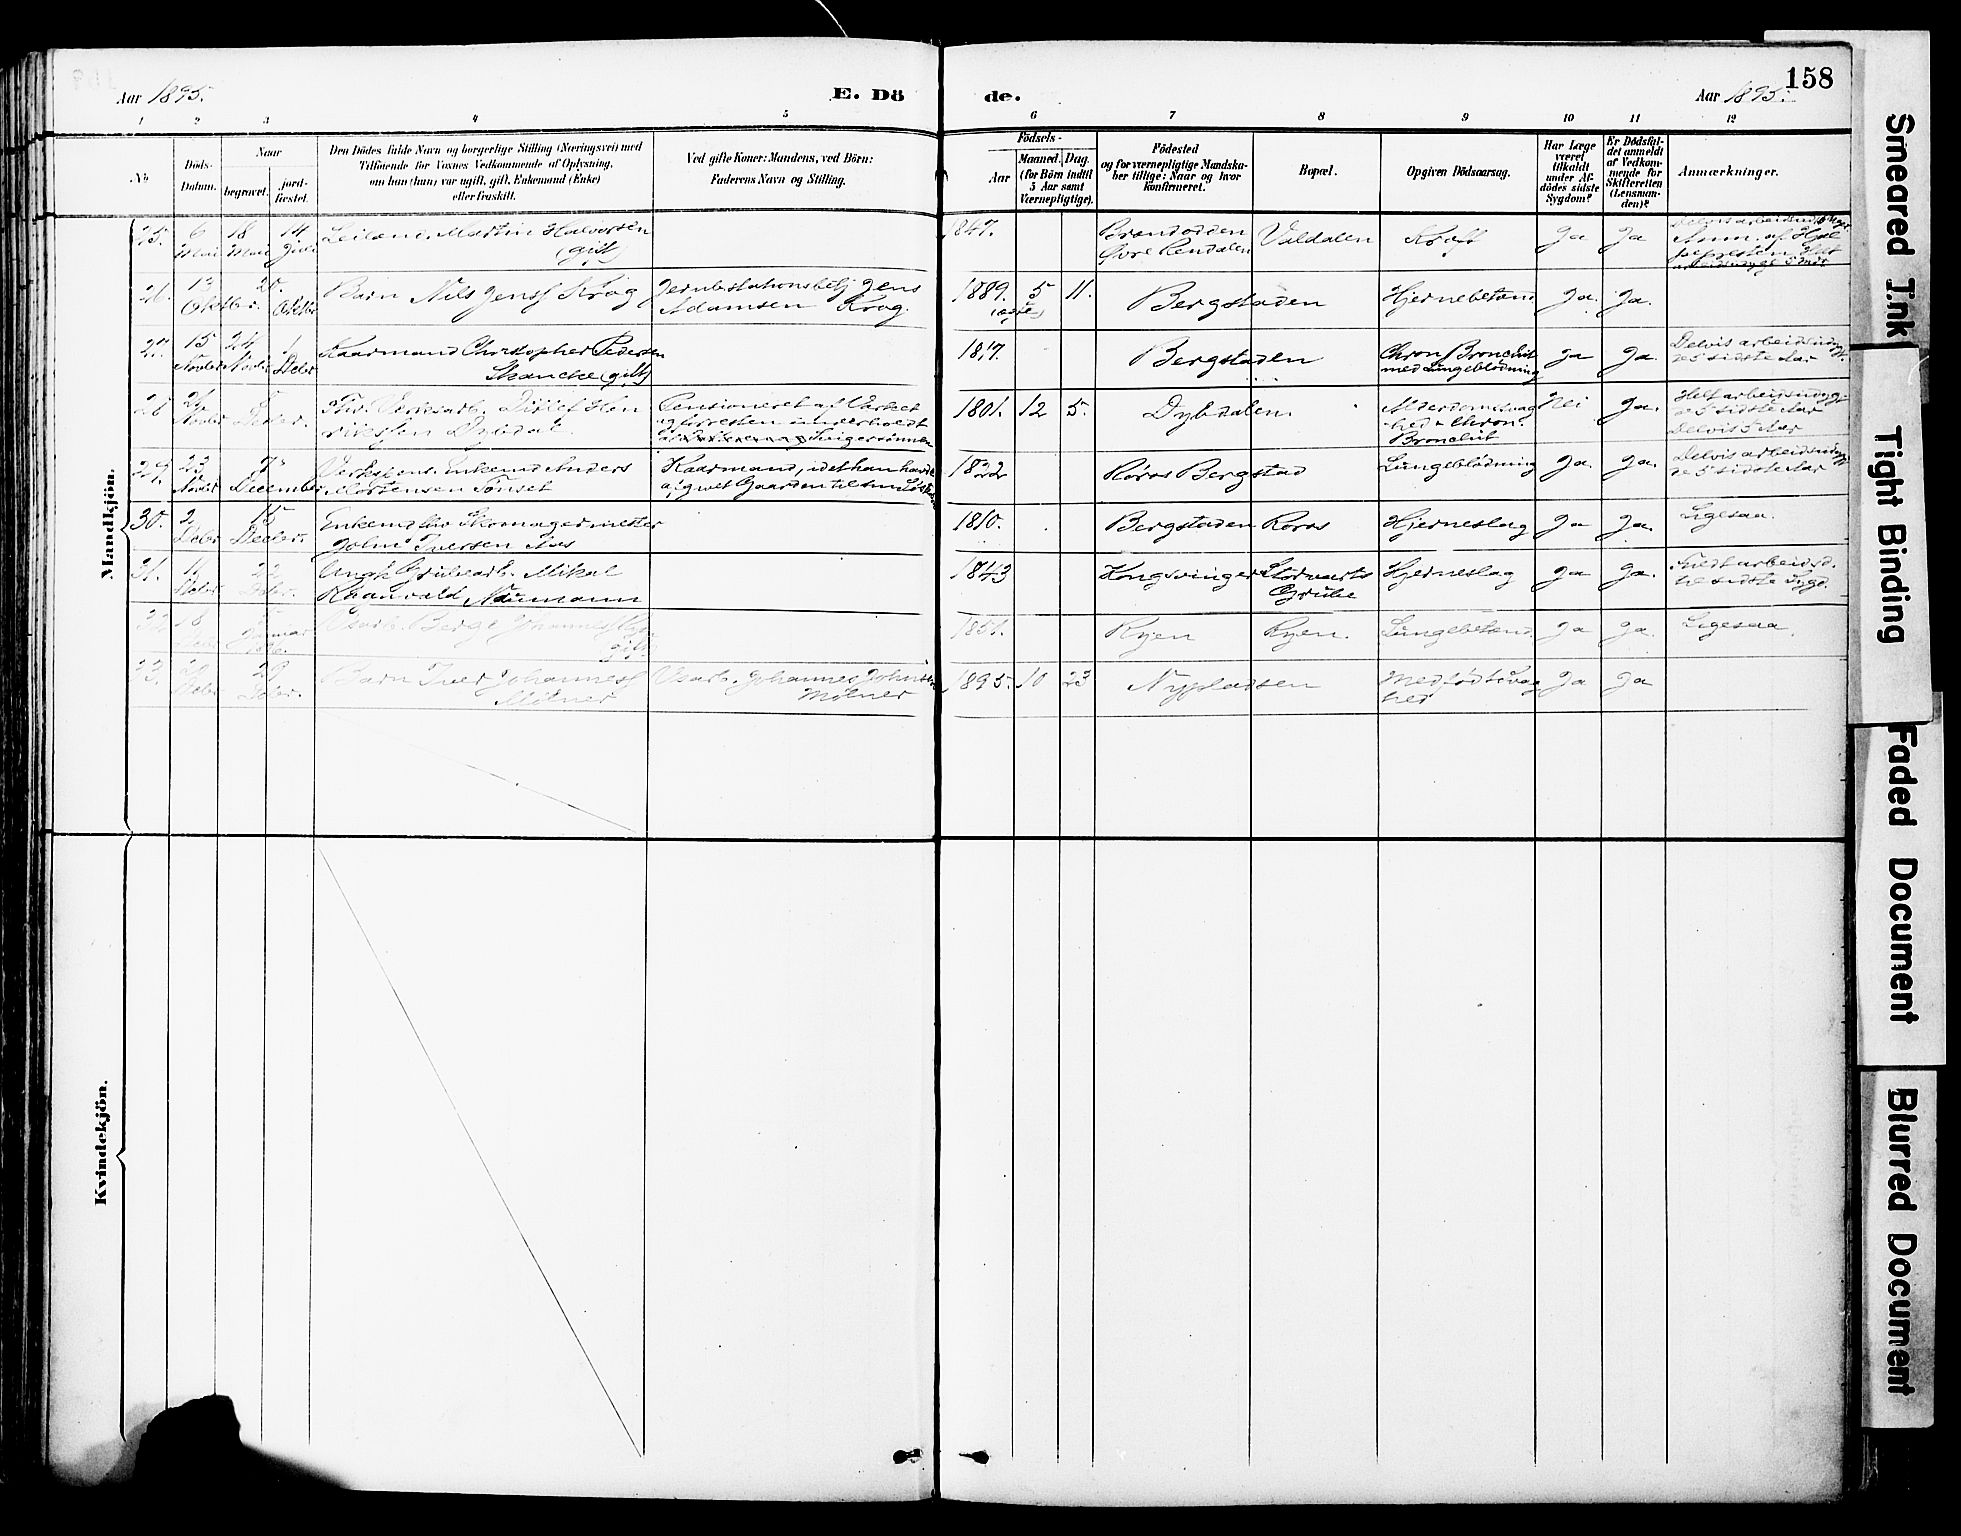 158
Aar 1895.
E. Dö
de.
Aar 1895.
1 2 3 4 5 6 7 8 9 10 11 12
No
Döds-
Datum.
Naar
begravet.
jord-
fæstet.
Den Dödes fulde Navn og borgerlige Stilling (Næringsvei) med
Tilföiende for Voxnes Vedkommende af Oplysning,
om han (hun) var ugift, gift, Enkemand (Enke)
eller fraskilt.
Ved gifte Koner: Mandens, ved Börn:
Faderens Navn og Stilling.
Födsels-
Aar
Maaned. Dag.
(for Börn indtil
5 Aar samt
Værnepligtige).
Födested
og for værnepligtige Mandska-
ber tillige: Naar og hvor
konfirmeret.
Bopæl.
Opgiven Dödsaarsag.
Har Læge
været
tilkaldt
under Af-
dödes sidste
Sygdom?
Er Dödsfal-
det anmeldt
af Vedkom-
mende for
Skifteretten
(Lensman-
den)?
Anmærkninger.
Mandkjön.
25. 6 Mai 18 Mai 14 Juni
Leilænd. Martin Halvorsen
(gift)
1847.
Brændodden
Øvre Rendalen
Valdalen
Kræft
Ja Ja
26. 13 Oktbr. 20. Oktbr.
Barn Nils Jenss Krag
Jernbstationsbetj Jens
Adamsen Krag.
1889. 5 11.
Bergstaden
Hjernebetænd
Ja. Ja.
27. 15 Novbr 24 Novbr 1 Debr.
Kaarmand Christopher Pedersen
Skancke (gift)
1817.
Bergstaden
Chron Bronchit
med Lungeblødning
Ja Ja.
Delvis arbeidsudygt.
de 5 sidste Aar
28 26 Novbr 5 Decbr.
Fhv. Verksarb. Ditlef Hen
riksen Dybdal
Pensioneret af Verket
og forresten underholdt
Svigersønnen
1801. 12 5.
Dybdalen
Alderdomssvag
hed & Chron.
Bronchit
Nei Ja.
Helt arbeidsudygt
de 5 sidste Aar
Delvis 5 Aar
29. 23 Novbr 7 December
Verkspens. Enkemd Anders
Mortensen Tønset
Kaarmand, idet han havde
afgivet Gaarden til sin
1822
Røros Bergstad
Lungeblødning
Ja. Ja.
Delvis arbeidsudygt
de 5 sidste Aar
30. 2 Debr 15 Decbr.
Enkemd fhv Skomagermester
John Iversen Aas
1810.
Bergstaden
Røros
Hjerneslag
Ja Ja.
Ligesaa.
31. 11 Debr 22 Debr.
Ungk Grubearb. Mikal
Raanvald Naumann
1843
Kongsvinger
Storvarts
Grube
Hjerneslag
Ja Ja.
til sidste Sygd.
32 18 Debr Januar
Vearb. Berge Johanness Ryen
gift.
1851.
Ryen
Ryen.
Lungebetænd.
Ja Ja.
Ligesaa.
33. 20 Debr 29 Debr.
Barn Iver Johanness
Mølner
Vearb. Johannes Johnsen
Mølner
1895. 10 23
Nypladsen
Medfødt Svag
hed
Ja Ja
Kvindekjön.
Smeared Ink
Tight Binding
Faded Document
Blurred Document